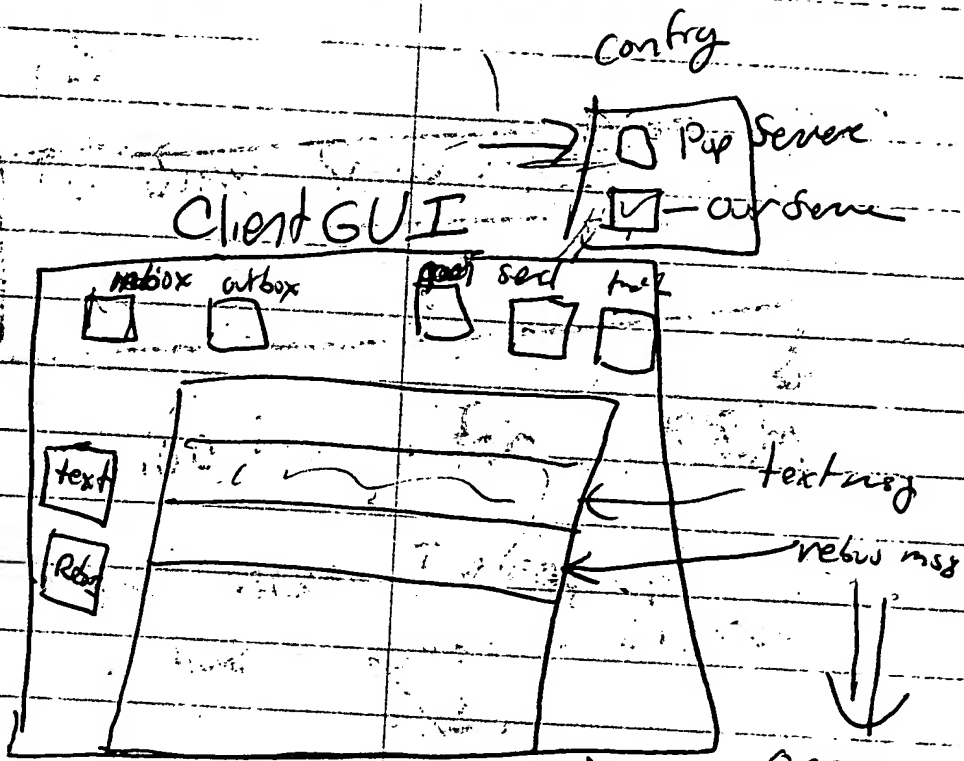 Config
Pop Server
our Serve
Client GUI
inbox outbox send
text
text msg
Rebus
rebus msg